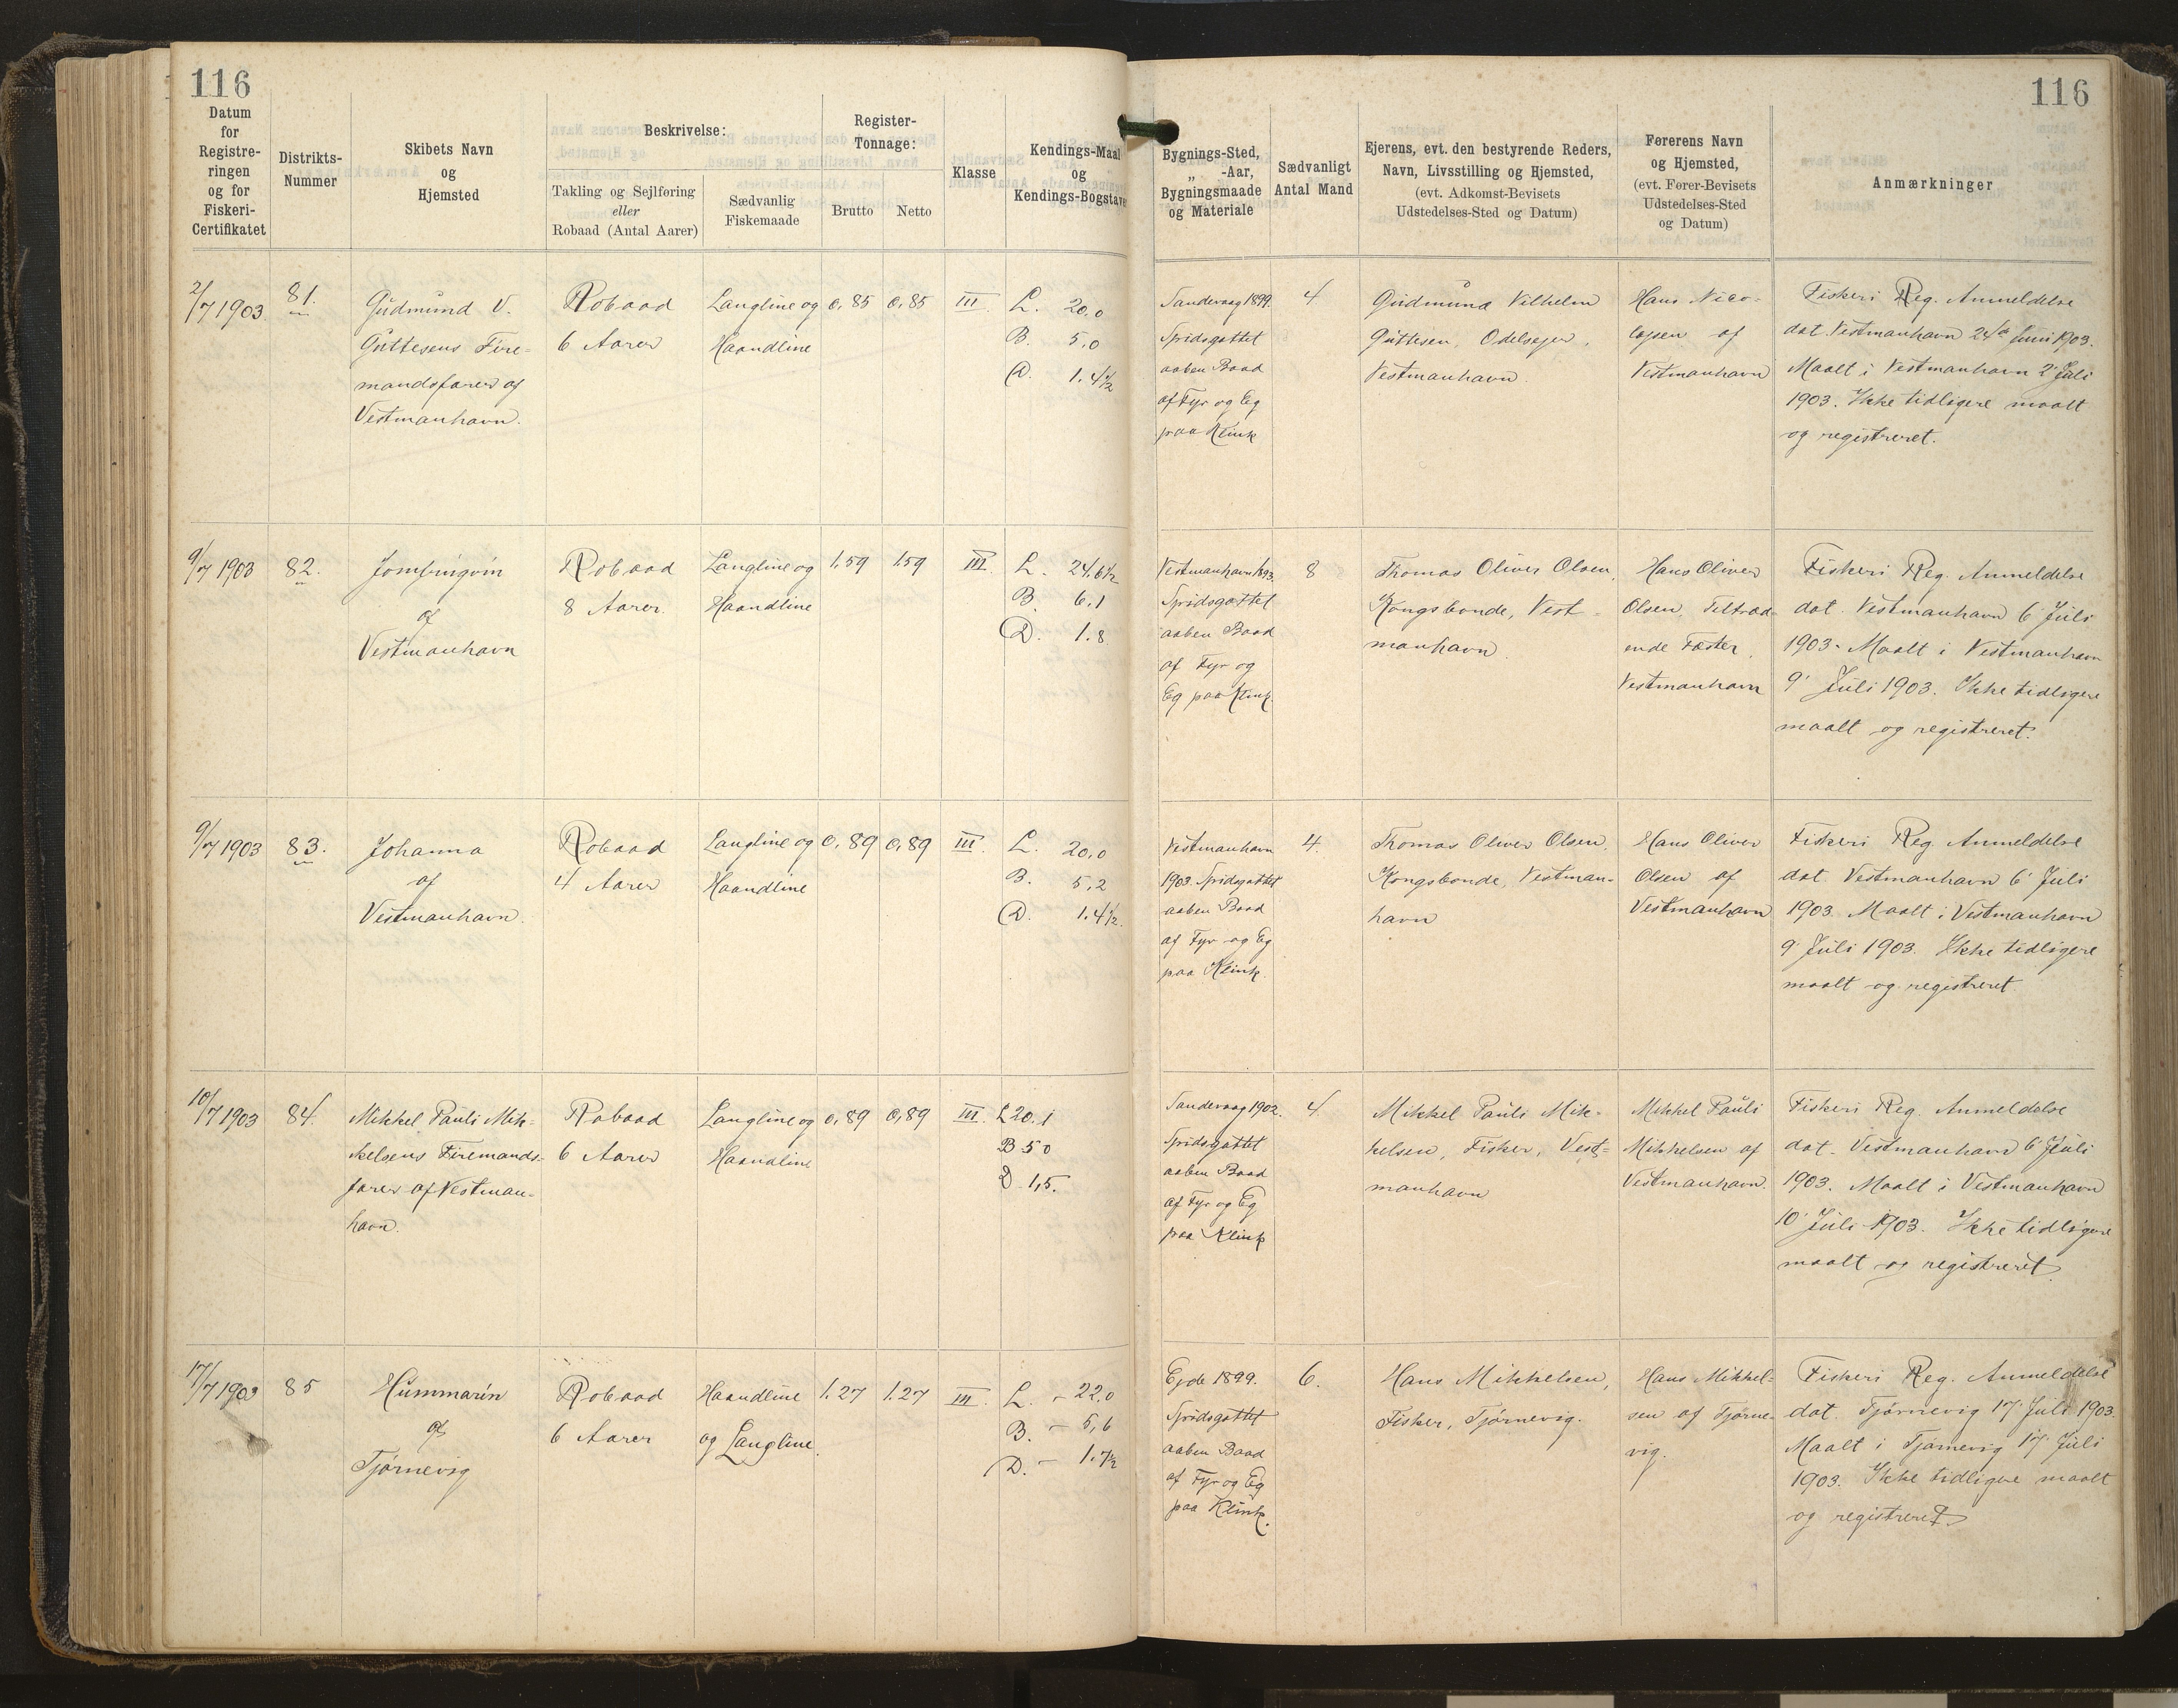 116
116
Datum
for
Registre-
ringen
og for
Fiskeri-
Certifikatet
Distrikts-
Nummer
Skibets Navn
og
Hjemsted
Beskrivelse:
Takling og Sejlføring
eller
Robaad (Antal Aarer)
Sædvanlig
Fiskemaade
Register-
Tonnage:
Brutto
Netto
Klasse
Kendings-Maal
og
Kendings-Bogstaver
Bygnings-Sted,
„ -Aar,
Bygningsmaade
og Materiale
Sædvanligt
Antal Mand
Ejerens, evt. den bestyrende Reders,
Navn, Livsstilling og Hjemsted,
(evt. Adkomst-Bevisets
Udstedelses-Sted og Datum)
Førerens Navn
og Hjemsted,
(evt. Fører-Bevisets
Udstedelses-Sted
og Datum)
Anmærkninger
2/7 1903
81.
Gudmund V.
Guttesens Fire-
mandsfarer af
Vestmanhavn.
Robaad
6 Aarer
Langline og
Haandline
0,85
0,85
III.
L. 20,0
B. 5,0
D. 1.4½
Sandevaag 1899.
Spidsgattet
aaben Baad
af Fyr og Eg
paa Klink
4
Gudmund Vilhelm
Guttesen, Odelsejer,
Vestmanhavn.
Hans Nico-
lajsen af
Vestmanhavn
Fiskeri Reg. Anmeldelse
dat. Vestmanhavn Juni 1903.
Maalt i Vestmanhavn 2' Juli
1903. Ikke tidligere maalt
og registreret.
9/7 1903
82.
af
Vestmanhavn
Robaad
8 Aarer.
Langline og
Haandline
1.59
1.59
III.
L. 24,6½
B. 6,1
D. 1.8
Vestmanhavn 1893.
Spidsgattet
aaben Baad
af Fyr og
Eg paa Klink.
8
Thomas Oliver Olsen,
Kongsbonde, Vest-
manhavn.
Hans Oliver
Olsen, Tiltræd-
ende Fæster,
Vestmanhavn
Fiskeri Reg. Anmeldelse
dat. Vestmanhavn 6' Juli
1903. Maalt i Vestmanhavn
9' Juli 1903. Ikke tidligere
maalt og registreret.
9/7 1903
83.
Johanna
af
Vestmanhavn.
Robaad
4 Aarer
Langline og
Haandline
0,89
0,89
III.
L. 20,0
B. 5,2
D. 1.4½.
Vestmanhavn
1903. Spidsgattet
aaben Baad
af Fyr og Eg
paa Klink.
4.
Thomas Oliver Olsen,
Kongsbonde, Vestman-
havn
Hans Oliver
Olsen af
Vestmanhavn
Fiskeri Reg. Anmeldelse
dat. Vestmanhavn 6' Juli
1903. Maalt i Vestmanhavn
9' Juli 1903. Ikke tidligere
maalt og registreret
10/7 1903
84.
Mikkel Pauli Mik-
kelsens Firemands-
farer af Vestman-
havn.
Robaad
6 Aarer
Langline og
Haandline
0,89
0,89
III.
L 20.1
B 5 0
D 1,5.
Sandevaag 1902.
Spidsgattet
aaben Baad
af Fyr og Eg
paa Klink
4.
Mikkel Pauli Mik-
kelsen, Fisker, Vest-
manhavn
Mikkel Pauli
Mikkelsen af
Vestmanhavn.
Fiskeri Reg. Anmeldelse
dat. Vestmanhavn 6' Juli
1903. Maalt i Vestmanhavn
10' Juli 1903. Ikke tidligere
maalt og registreret.
17/7 1903
85
Hummarin
af
Tjørnevig
Robaad
6 Aarer
Haandline
og Langline.
1.27
1.27
III.
L. - 22,0
B. - 5,6
D. - 1.7½
Ejde 1899.
Spidsgattet
aaben Baad
af Fyr og Eg
paa Klink.
6.
Hans Mikkelsen,
Fisker, Tjørnevig.
Hans Mikkel-
sen af Tjørne-
vig.
Fiskeri Reg. Anmeldelse
dat. Tjørnevig 17' Juli 1903.
Maalt i Tjørnevig 17' Juli
1903. Ikke tidligere maalt
og registreret.